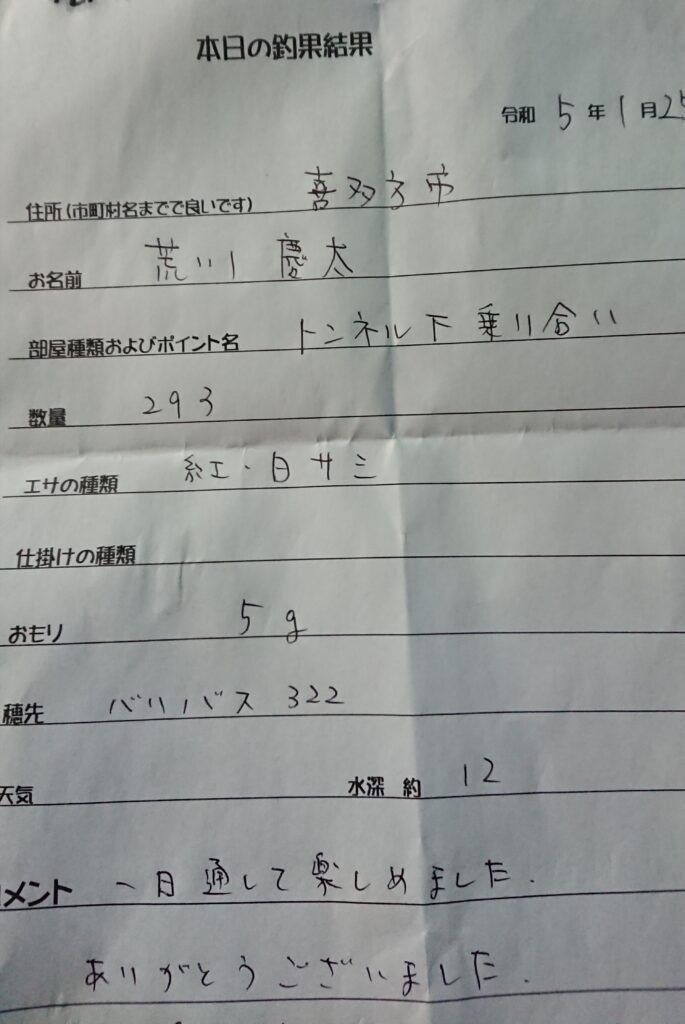 本日の釣果結果
令和 5年1月25
住所(市町村名までで良いです) 喜多方市
お名前 荒川 慶太
部屋種類およびポイント名 トンネル下乗り合い
数量 293
エサの種類 紅・白サミ
仕掛けの種類
おもり 5g
穂先 バリバス 322
天気 水深 約 12
メント 一日通して楽しめました.
ありがとうございました.